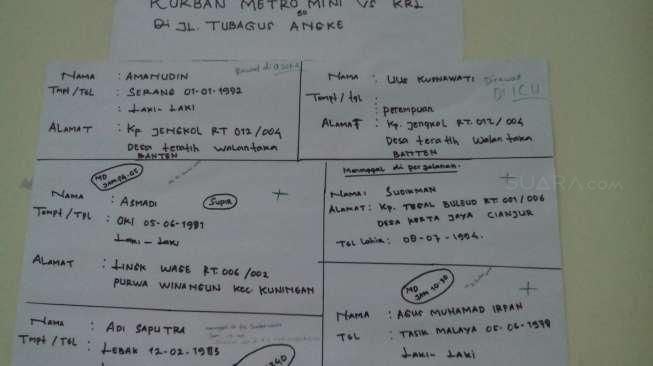 KURBAN METRO MINI VS KRL
Di JL. TUBAGUS ANGKE
NAMA : AMANUDIN
TMPT / TGL : SERANG 01-01-1992
: LAKI - LAKI
ALAMAT : KP. JENGKOL RT 012 / 004
DESA teratih walantaka
BANTEN
NAMA : UUS KUSNAWATI Dirawat
Di ICU
TMPT / tgl :
: perempuan
ALAMAT : Kp. Jengkol RT. 012 / 004
Desa teratih walantaka
BANTEN
MD
NAMA : ASMADI
Supir
TMPT / TGL : OKI 05-06-1981
LAKI - LAKI
ALAMAT : LINGK WAGE RT. 006 / 002
PURWA WINANGUN KEC KUNINGAN
Meninggal di perjalanan.
SUARA.com
NAMA : SUDIKMAN
ALAMAT : Kp. TEGAL BULEUD RT 001 / 006
DESA KERTA JAYA CIANJUR
TGL Lahir : 08-07-1994.
NAMA : ADI SAPUTRA
TMPT / TGL : LEBAK 12-02-1983
MD
JAM 10.30
NAMA : AGUS MUHAMAD IRPAN
TGL : TASIK MALAYA 05-06-1978
LAKI - LAKI